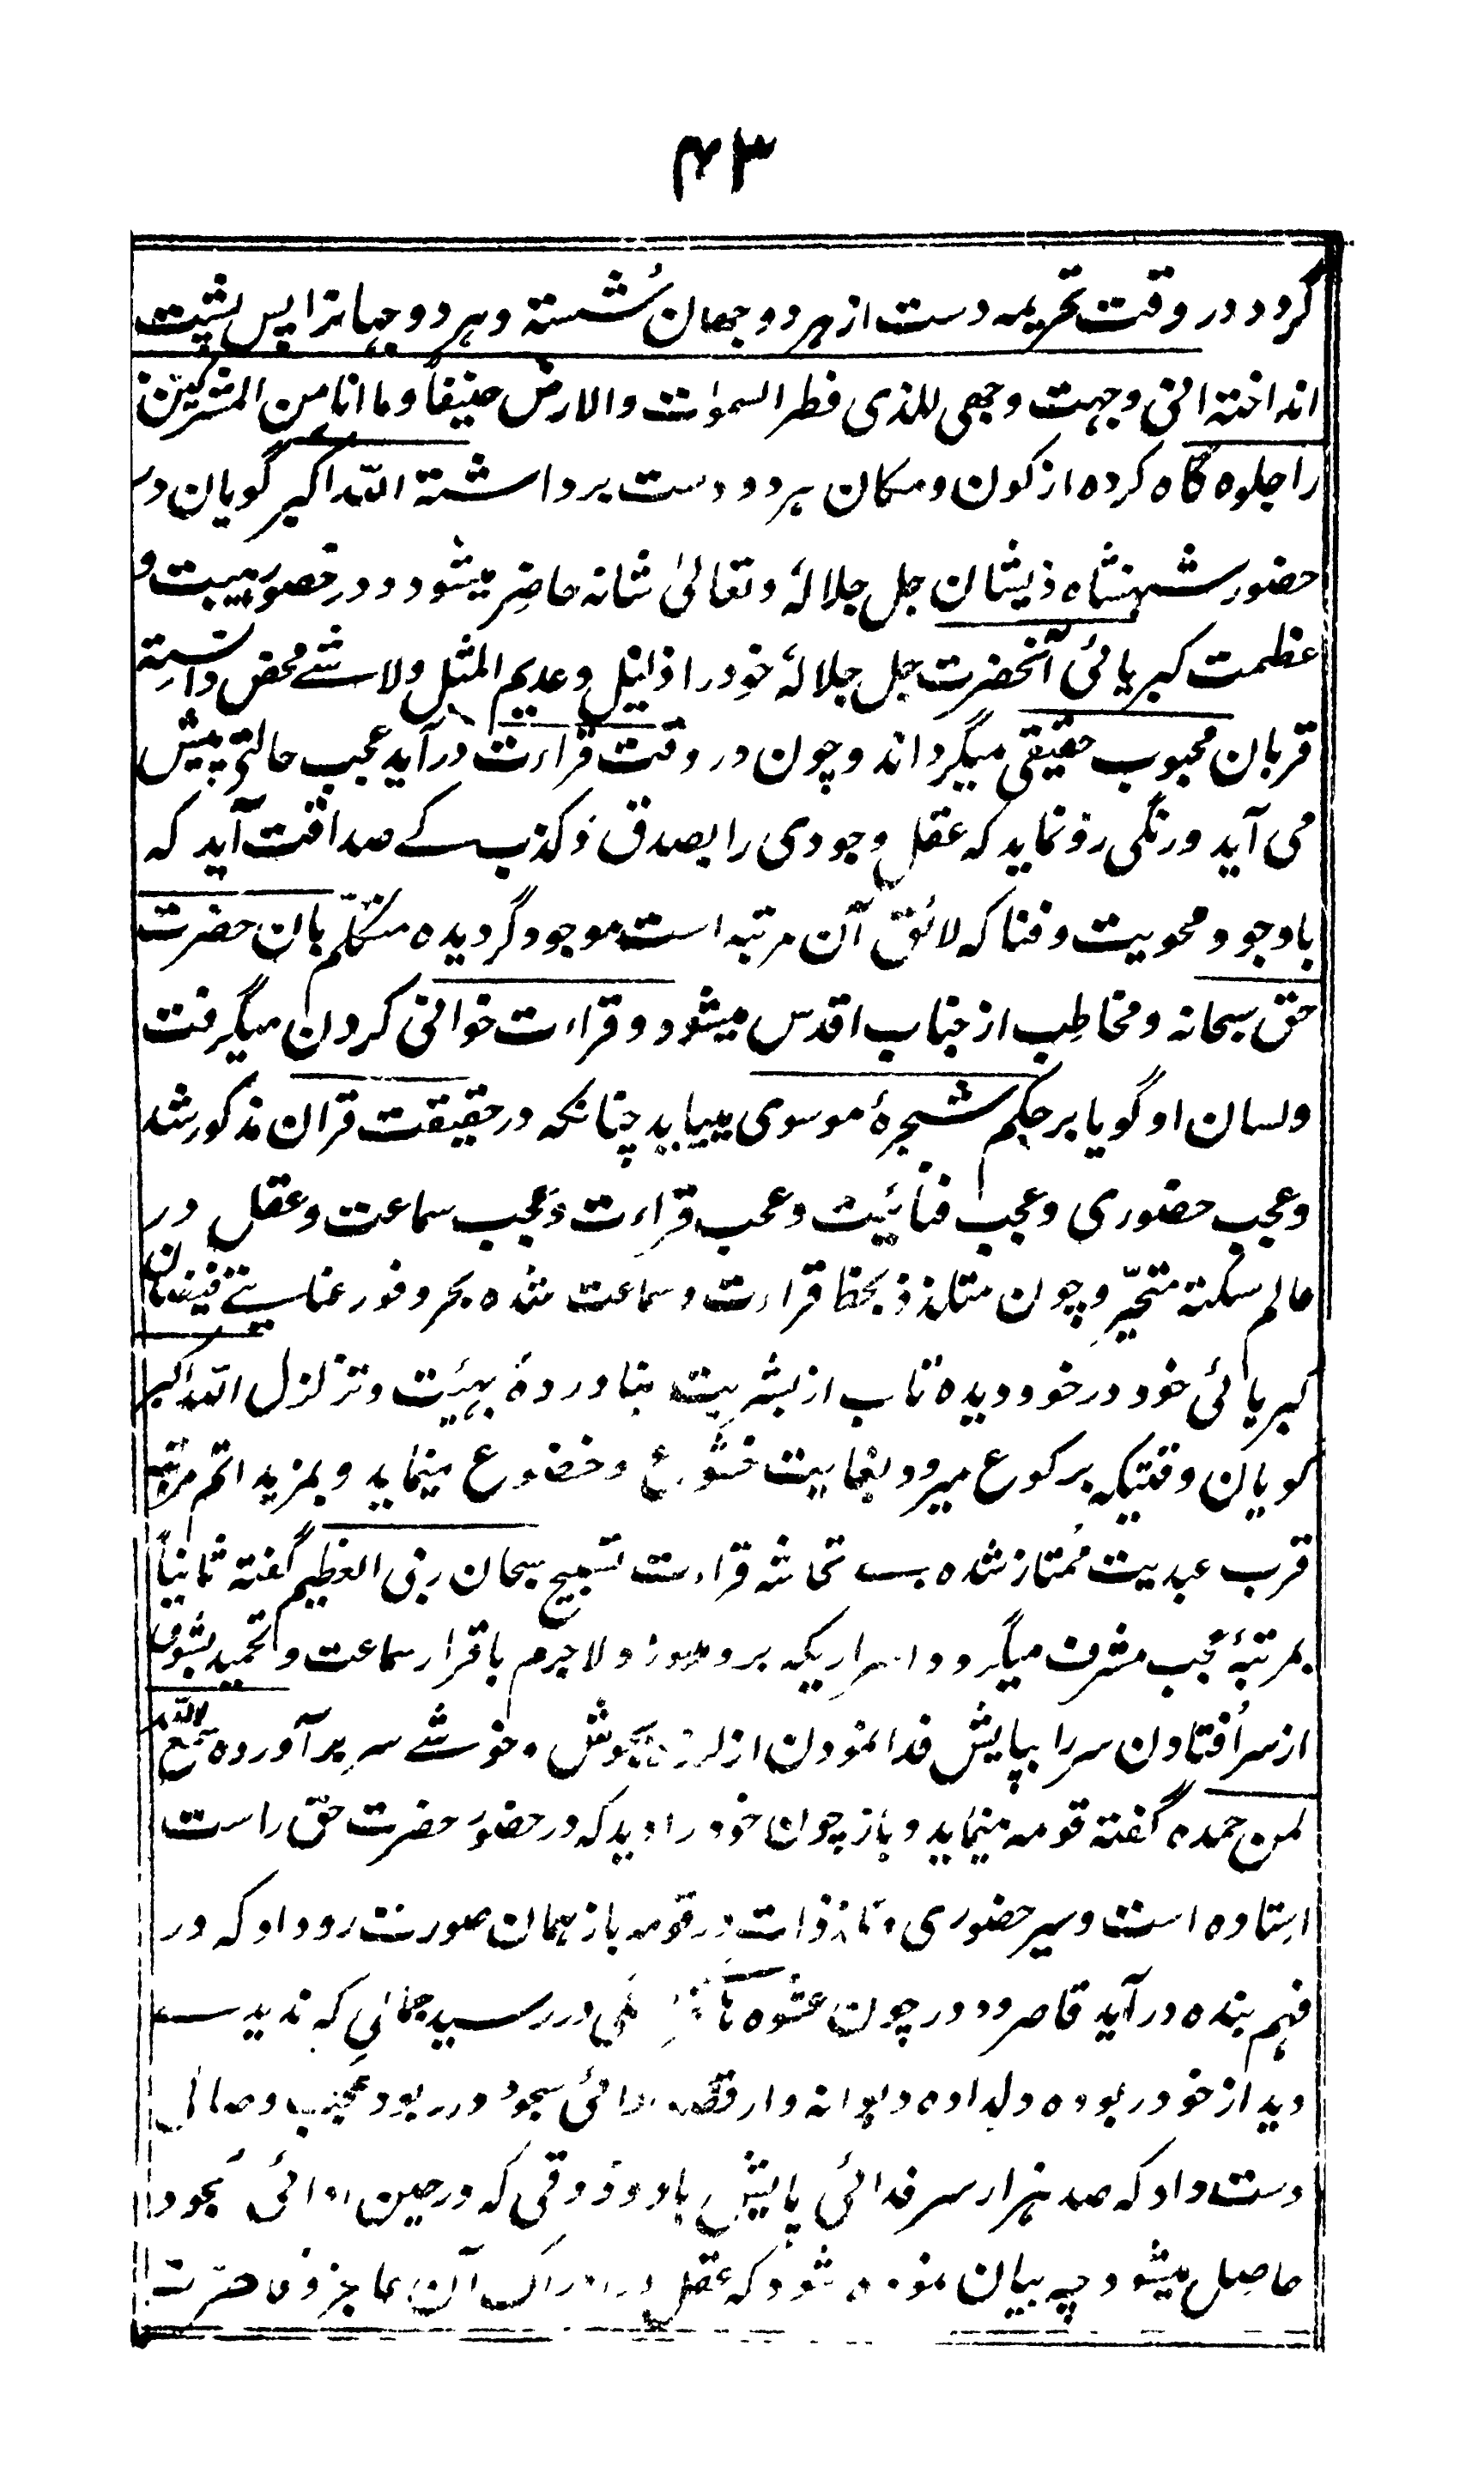 ۴۳
گردد در وقت تحریمه دست از هر دو جهان شُسته و هر دو جهانرا پس پشت
انداخته انی وجهت وجهی للذی فطر السموٰت والارض حنیفاً وما انا من المشرکین
را جلوه گاه کرده از کون و مکان هر دو دست برداشته اللّٰه اکبر گویان در
حضور شهنشاه ذیشان جل جلالهٗ وتعالیٰ شانه حاضِر میشود و در حضور هیبت و
عظمت کبریائی آنحضرت جل جلالهٗ خود را ذلیل و عدیم المثل ولا شے محض دانسته
قربان محبوب حقیقی میگرداند و چون در وقت قراءت درآید عجب حالتی پیش
می آید و رنگی رو نماید که عقل وجودی را بصدق و کذب کے صداقت آید که
باوجود محویت و فنا که لائق آن مرتبه است موجود گردیده متکلّم بان حضرت
حق سبحانه و مخاطِب از جناب اقدس میشود و قراءت خوانی کردن میگرفت
ولسان او گویا بر حکم شجرهٔ موسوی مییابد چنانکه در حقیقت قران مذکور شد
و عجب حضوری و عجب فنائیت و عجب قراءت و عجب سماعت و عقل در
عالم سکته متحیّر و چون متلذذ بحظ قراءت و سماعت شده بحر وفور عنایتے فیضان
کبریائی خود در خود دیده تاب از بشریت نیاورده بهیئت و تزلزل اللّٰه اکبر
گویان وقتیکه برکوع میرود بغایت خشوع و خضوع مینماید و بمزید اتم مرتبه
قرب عبدیت مُمتاز شده بے تحاشه قراءت تسبیح سبحان ربی العظیم گفته ثانیاً
بمرتبهٔ عجب مشرف میگردد اسراریکه برو و لاجرم باقرار سماعت و تحمید بشوق
از سر اُفتادن سر را بپایش فدا نمودن از بجوش و خوشے سر برآورده سمع اللّٰه
لمن حمده گفته قومه مینماید و باز چون خود را دید که در حضور حضرت حق راست
اِستاده است و سیر حضوری و ذات در قومه باز همان صورت رو داد که در
فهم بنده درآید قاصر و در چون عشوه در رسید جمالی که ندید سے
دید از خود ربوده دلداده دیوانه وار ادائی سجود در ربود عجب وصالی
دست داد که صد هزار سر فدائی پایش باد و ذوقی که در حین ادائی سجود
حاصل میشود چه بیان نموده شود که عقل در ادراک آن عاجز و قاصرست